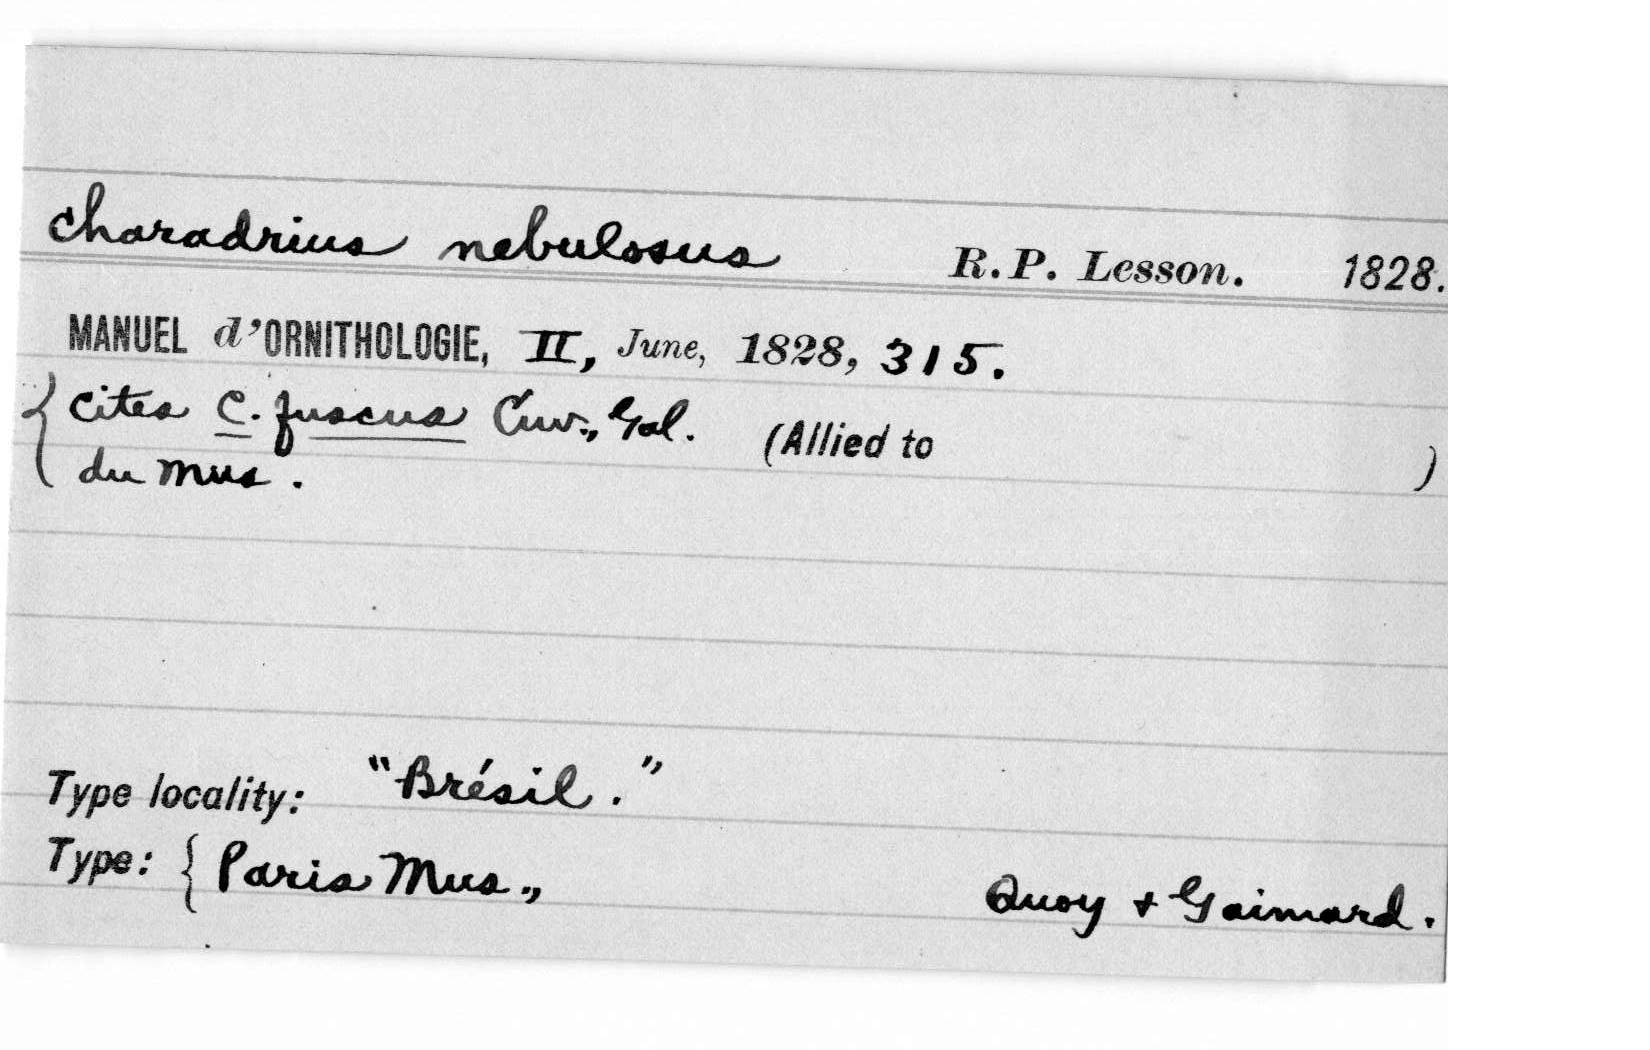 Charadrius nebulosus R.P. Lesson. 1828.
MANUEL d'ORNITHOLOGIE, II, June, 1828, 315.
{ cites C. fuscus Cuv., Gal. (Allied to )
du Mus.
Type locality: "Brésil."
Type: { Paris Mus., Quoy + Gaimard.